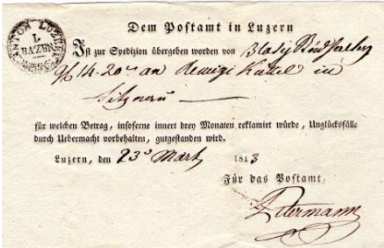 CANTON LUZERN
1.
BAZEN
Dem Postamt in Luzern
Ist zur Spedition übergeben worden von Blasy
14.20 an Remigi in
für welchen Betrag, insoferne innert drey Monaten reklamirt würde, Unglücksfälle
durch Uebermacht vorbehalten, gutgestanden wird.
Luzern, den 23ᵗ Martz 1813
Für das Postamt,
Petermann